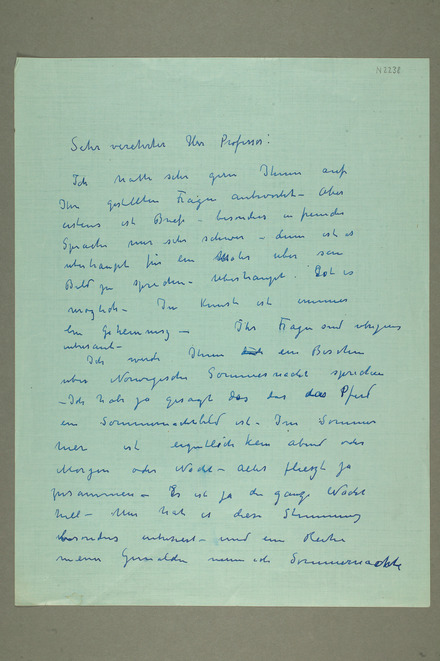 N 2238
Sehr verehrter Herr Professor!
Ich hatte sehr gern Ihnen auf
Ihre gestellten Fragen antwortet – Aber
erstens ist Briefe – besonders in fremde
Sprache mir sehr schwer – dann ist es
uberhaupt für ein Maler uber sein
Bild zu sprechen – uberhaupt. ist es
moglich – In Kunst ist immer
ein – Ihr Fragen sind ubrigens
interesant –
Ich werde Ihnen ein Bischen
uber Norwegische Sommernacht sprechen
– Ich habe ja gesagt das das Pferd
ein Sommernachtbild ist – Im Sommer
hier ist eigentlich kein abend oder
Morgen oder Nacht – alles fliesst ja
zusammen – Es ist ja die ganze Nacht
hell – Mir hat es diese Stimmung
besonders interesiert – und ein Reihe
meine Gemalden nenne ich Sommernachte